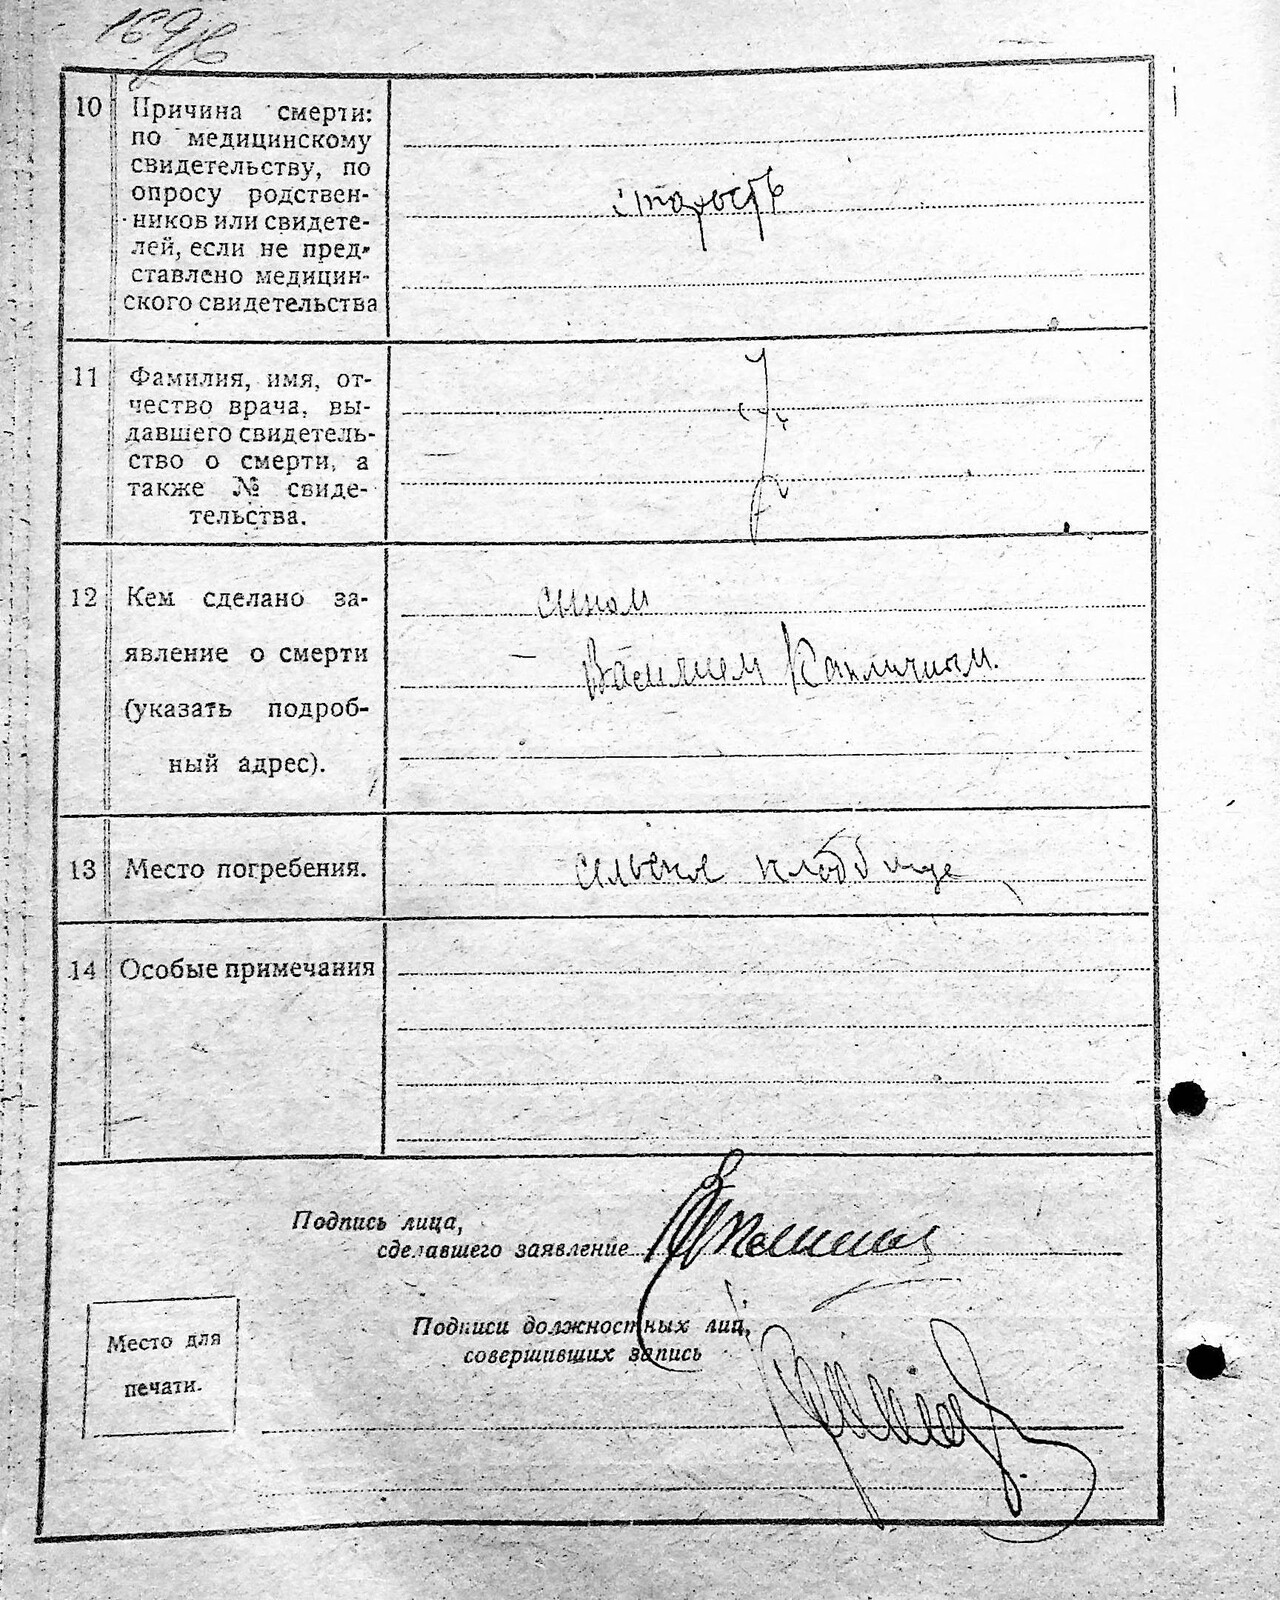 10 Причина смерти:
по медицинскому
свидетельству, по
опросу родствен-
ников или свидете-
лей, если не пред-
ставлено медицин-
ского свидетельства
старость
11 Фамилия, имя, от-
чество врача, вы-
давшего свидетель-
ство о смерти, а
также № свиде-
тельства.
12 Кем сделано за-
явление о смерти
(указать подроб-
ный адрес).
сыном
- Василием
13 Место погребения.
сельское кладбище
14 Особые примечания
Подпись лица,
сделавшего заявление
Подписи должностных лиц,
совершивших запись
Место для
печати.